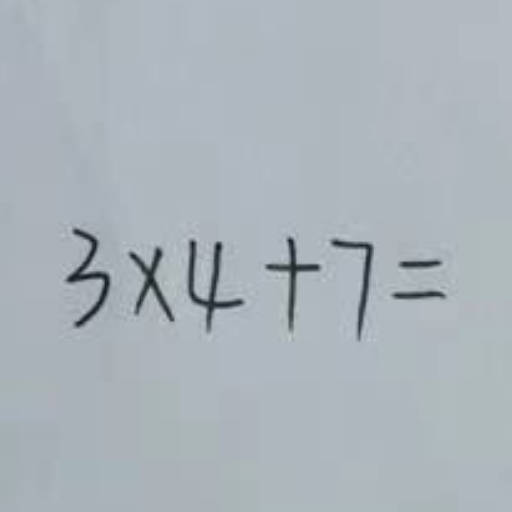 3×4+7=